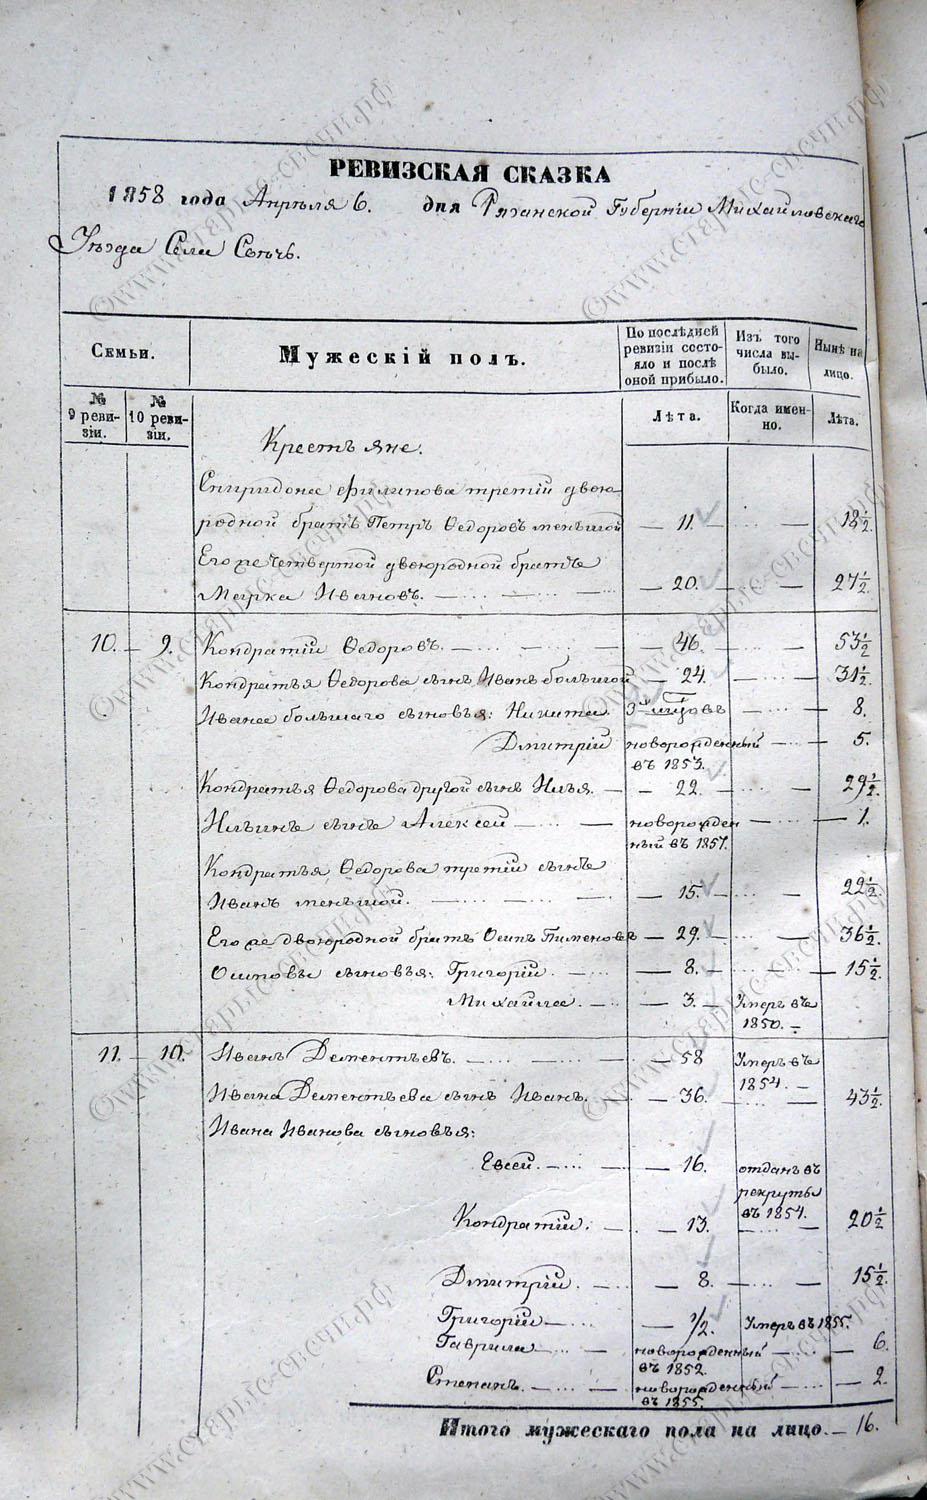 РЕВИЗСКАЯ СКАЗКА
1858 года Апрѣля 6. дня Рязанской Губерніи Михайловскаго
Уѣзда Села Свѣчъ.
Семьи.
Мужескій полъ.
По послѣдней ревизіи состояло и послѣ оной прибыло.
Изъ того числа выбыло.
Нынѣ на лицо.
№ 9 ревизіи.
№ 10 ревизіи.
Лѣта.
Когда именно.
Лѣта.
Крестьяне.
Спиридона Филипова третій двою-
родной братъ Петръ Ѳедоровъ меньшой — 11 — — 18½.
Его же четвертой двоюродной братъ
Марка Ивановъ. — 20. — — 27½.
10. — 9. Кондратій Ѳедоровъ. — 46. — — 53½
Кондратья Ѳедорова сынъ Иванъ большой — 24. — — 31½.
Ивана большаго сыновья: Никита. 3х мѣсцовъ — — 8.
Дмитрій новорожденный въ 1853. — — 5.
Кондратья Ѳедорова другой сынъ Илья. — 22. — — 29½.
Ильинъ сынъ Алексей — новорожден
ный въ 1857. — — 1.
Кондратья Ѳедорова третій сынъ
Иванъ меньшой. — 15. — — 22½.
Его же двоюродной братъ Осипъ Пименовъ — 29. — — 36½.
Осиповы сыновья: Григорій. — 8. — — 15½.
Михайла. — 3. — Умеръ въ
1850. —
11. — 10. Иванъ Дементьевъ. — 58 Умеръ въ
1854. —
Ивана Дементьева сынъ Иванъ. — 36. — — 43½.
Ивана Иванова сыновья:
Евсей. — 16. отданъ въ
рекруты
въ 1854.
Кондратій. — 13. — — 20½
Дмитрій. — 8. — — 15½.
Григорій — ½. Умеръ въ 1855.
Гаврила — новорожденный
въ 1852. — 6.
Степанъ. — новорожденный
въ 1855. — 2.
Итого мужескаго пола на лицо. — 16.
©www.старые-свечи.рф